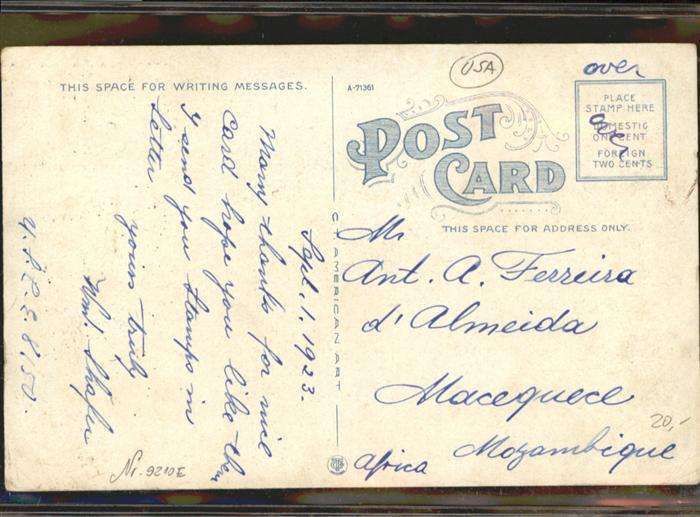 over
USA
THIS SPACE FOR WRITING MESSAGES.
A-71361
POST
CARD
PLACE
STAMP HERE
DOMESTIC
ONE CENT
FOREIGN
TWO CENTS
over
THIS SPACE FOR ADDRESS ONLY.
C T AMERICAN ART
Sept. 1. 1923.
Many thanks for nice
Card hope you like them
I send you Stamps in
Letter
yours truly
Wm. Shafer
U.S.C.E. 8.50.
Mr
Ant. A. Ferreira
d'Almeida
Macequece
Mozambique
Africa
20,-
Nr. 9210E